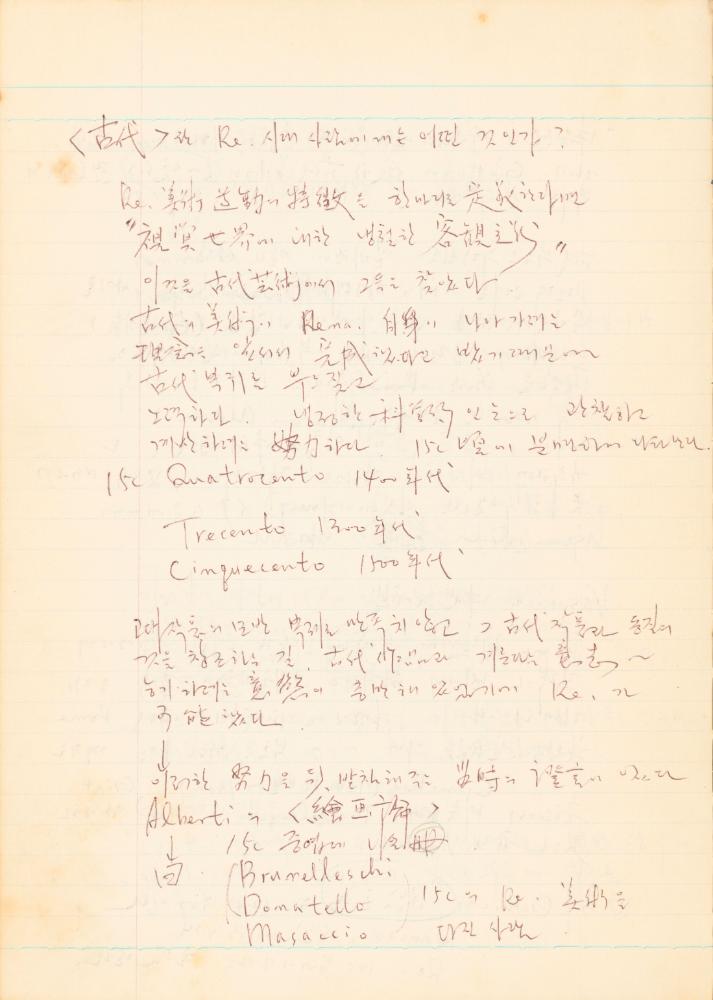 <古代>란 Re. 시대 사람에게는 어떤 것인가?
Re. 美術 運動의 特徵을 한마디로 定義한다면
"視覺世界에 대한 냉철한 客観主义"
이것을 古代芸術에서 그들은 찾았다.
古代의 美術이 Rena. 自身이 나아가려는
理念을 앞서서 完成했다고 봤기 때문에
古代 복귀를 부르짖고
노력하다. 냉정한 科学的인 눈으로 관찰하고
계산하려는 努力하다. 15c 
15c Quatrocento 1400年代
Trecento 1300年代
Cinquecento 1500年代
고대작품의 모방 복제로 만족치 않고 그 古代작품과 동질의
것을 창조하는 길, 古代 겨룬다는 意志
능가하려는 意慾이 충만해 있었기에 Re. 가
可能했다.
↓
이러한 努力을 뒷받침해주는 当時의 證言이 있다
Alberti의 <繪画論>
↓ 15c 중엽에 나온 冊
(Brunelleschi
Donatello 15c의 Re. 美術을
Masaccio 다진 사람